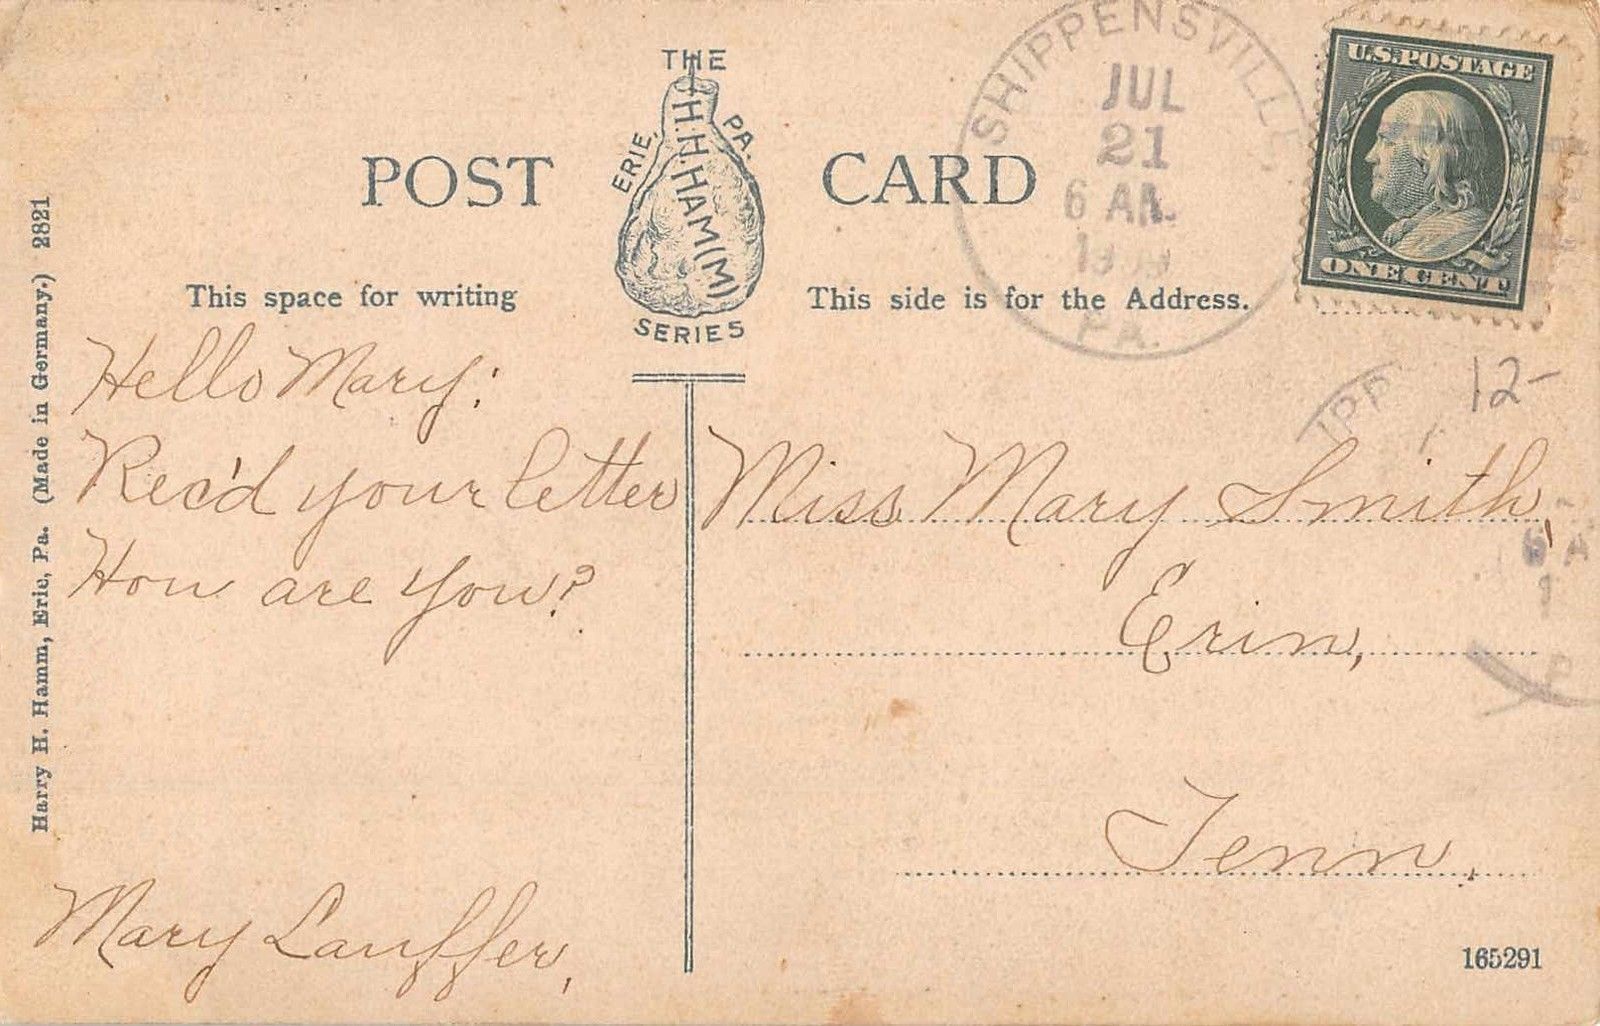 THE
H.H.HAM(M)
ERIE, PA.
SERIES
POST CARD
This space for writing
This side is for the Address.
SHIPPENSVILLE
JUL
21
6 AM
PA.
U.S. POSTAGE
ONE CENT
12-
IPP
Hello Mary:
Rec'd your letter
How are you?
Mary Lauffer,
Miss Mary Smith,
Erin,
Tenn.
6 A
1
P
165291
Harry H. Hamm, Erie, Pa. (Made in Germany.) 2821